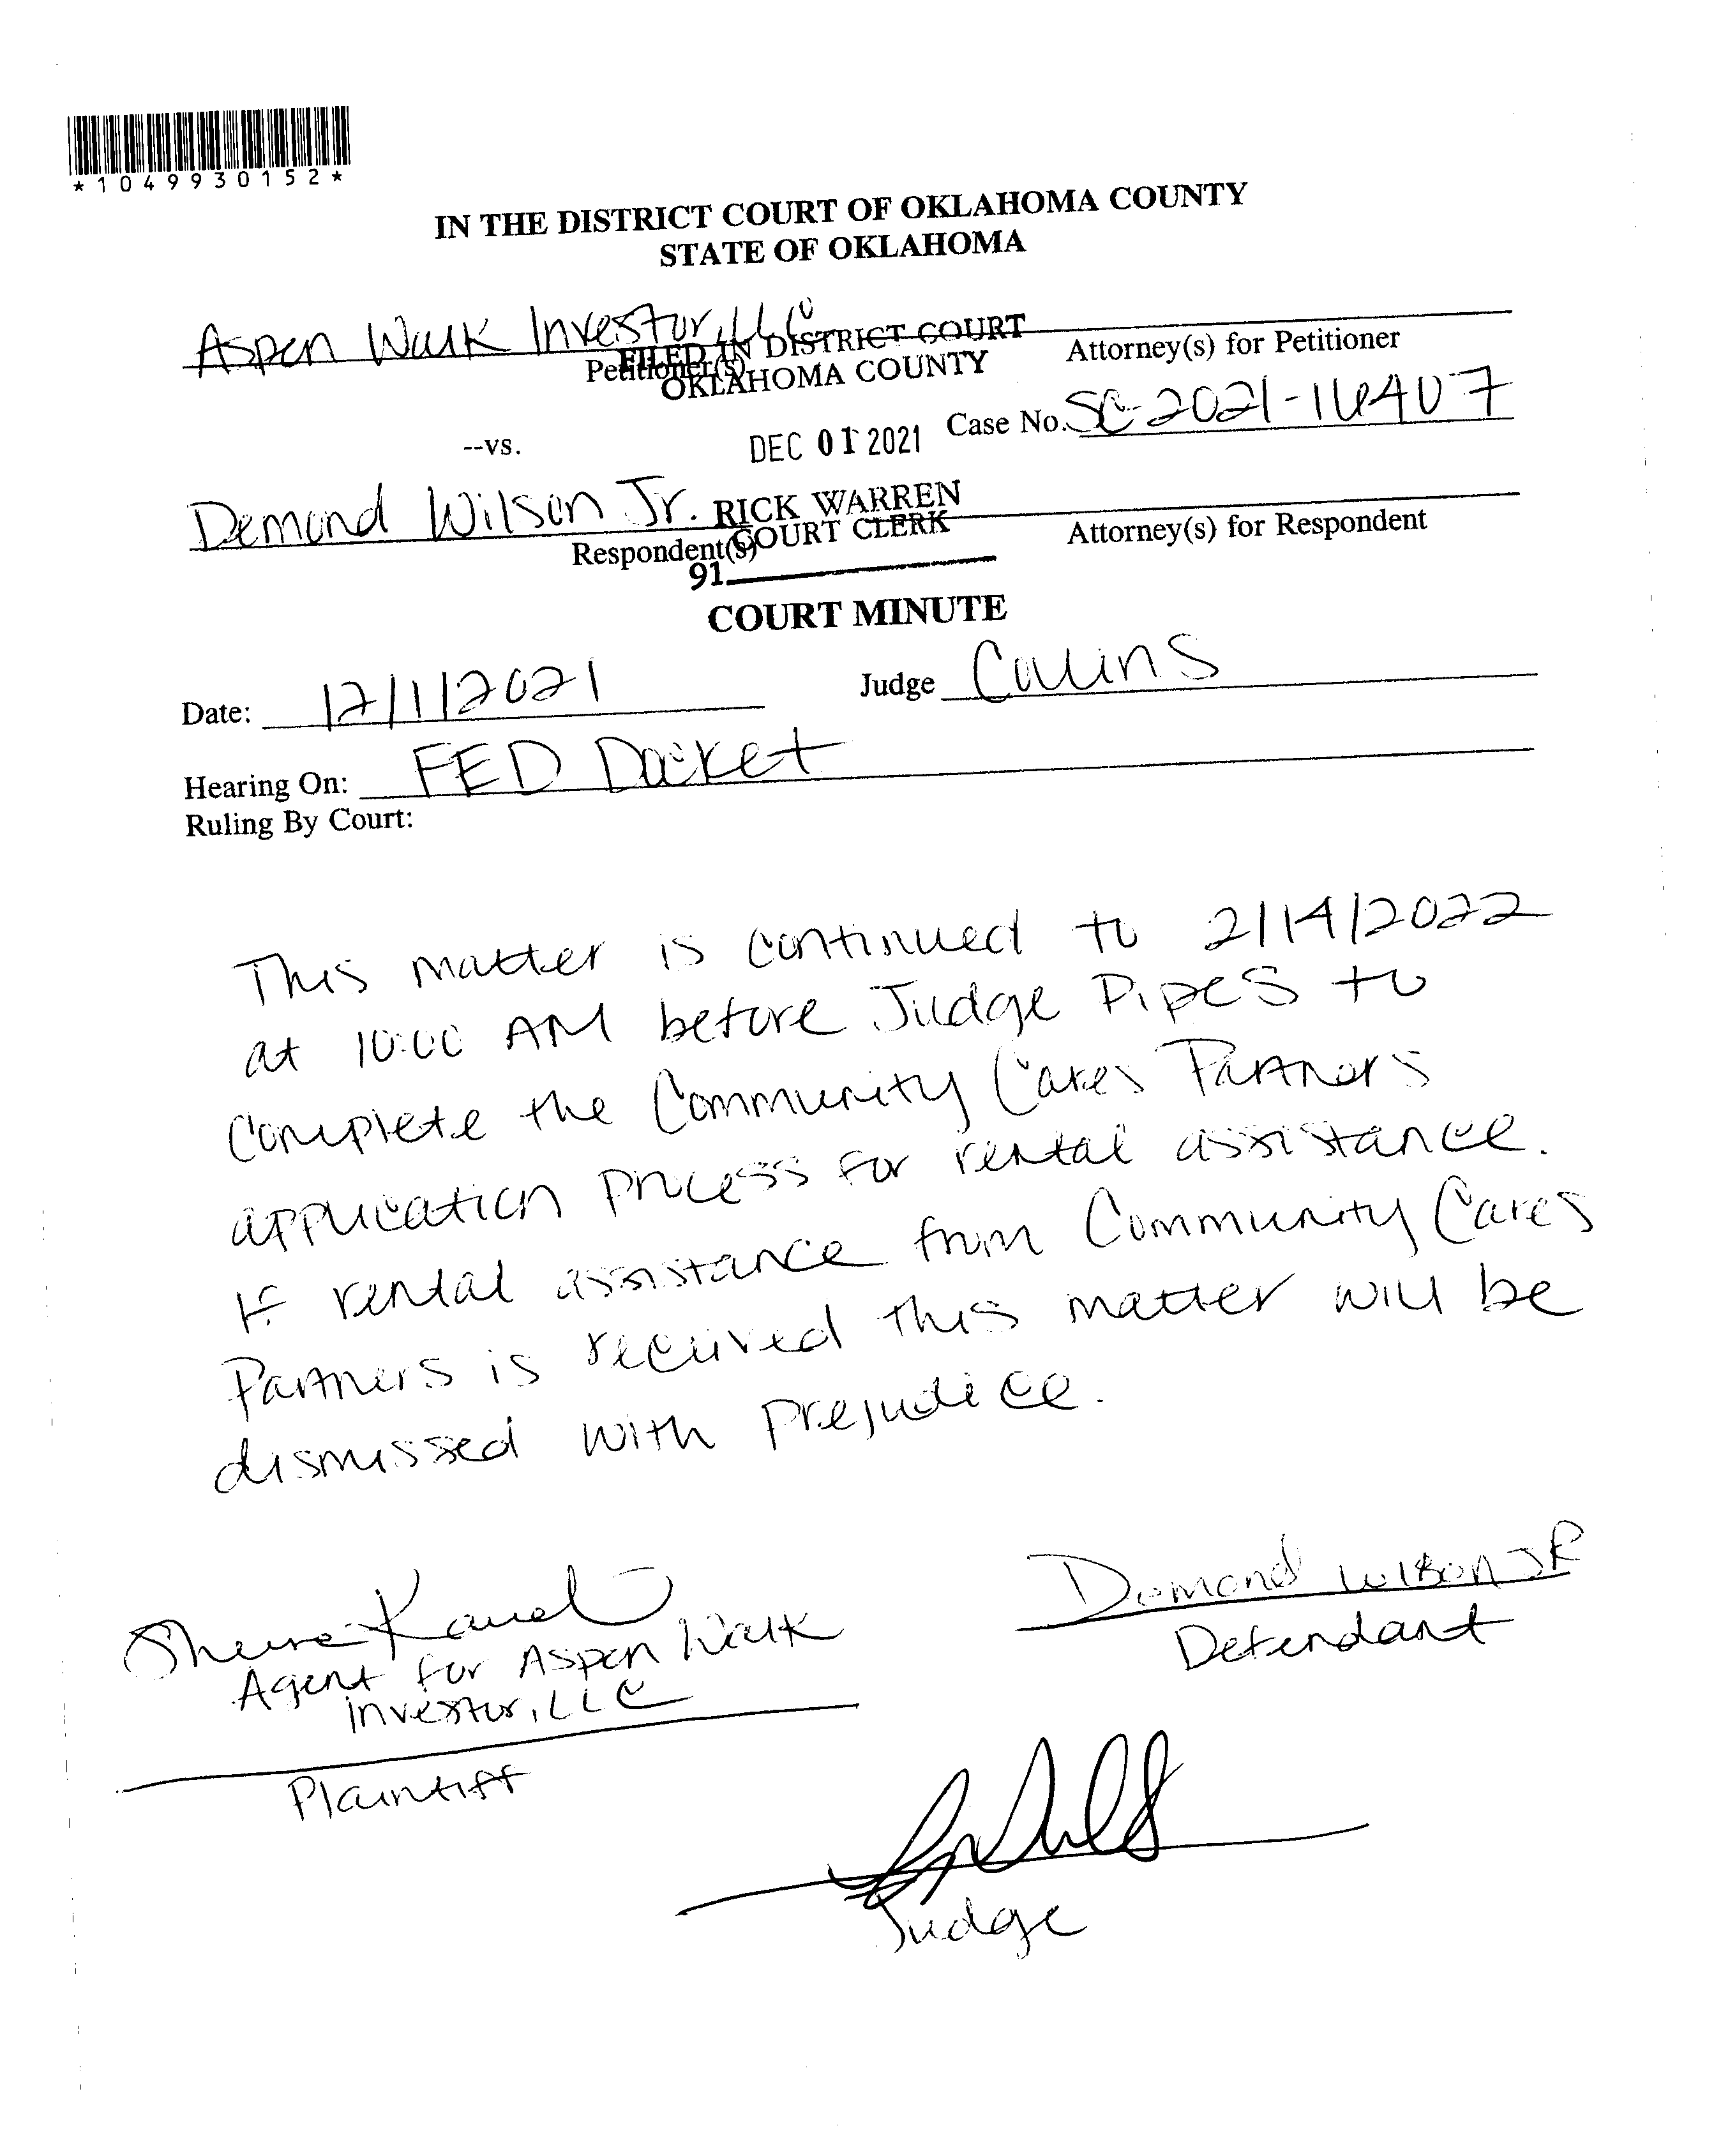 *1049930152*
IN THE DISTRICT COURT OF OKLAHOMA COUNTY
STATE OF OKLAHOMA
Aspen Walk Investor, LLC
Petitioner(s)
FILED IN DISTRICT COURT
OKLAHOMA COUNTY
Attorney(s) for Petitioner
--vs.
DEC 01 2021
Case No. SC-2021-16407
Demond Wilson Jr.
RICK WARREN
COURT CLERK
Respondent(s)
Attorney(s) for Respondent
91
COURT MINUTE
Date: 12/1/2021
Judge Collins
Hearing On: FED Docket
Ruling By Court:
This matter is continued to 2/14/2022
at 10:00 AM before Judge Pipes to
complete the Community Cares Partners
application process for rental assistance.
If rental assistance from Community Cares
Partners is received this matter will be
dismissed with prejudice.
Agent for Aspen Walk
Investor, LLC
Plaintiff
Demond Wilson JR
Defendant
Judge